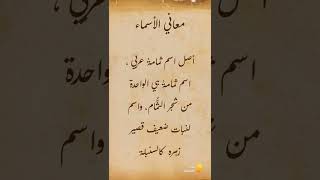 معاني الأسماء
أصل اسم ثمامة عربي ،
اسم ثمامة هي الواحدة
من شجر الثُّمام، واسم
لنبات ضعيف قصير
زهره كالسنبلة